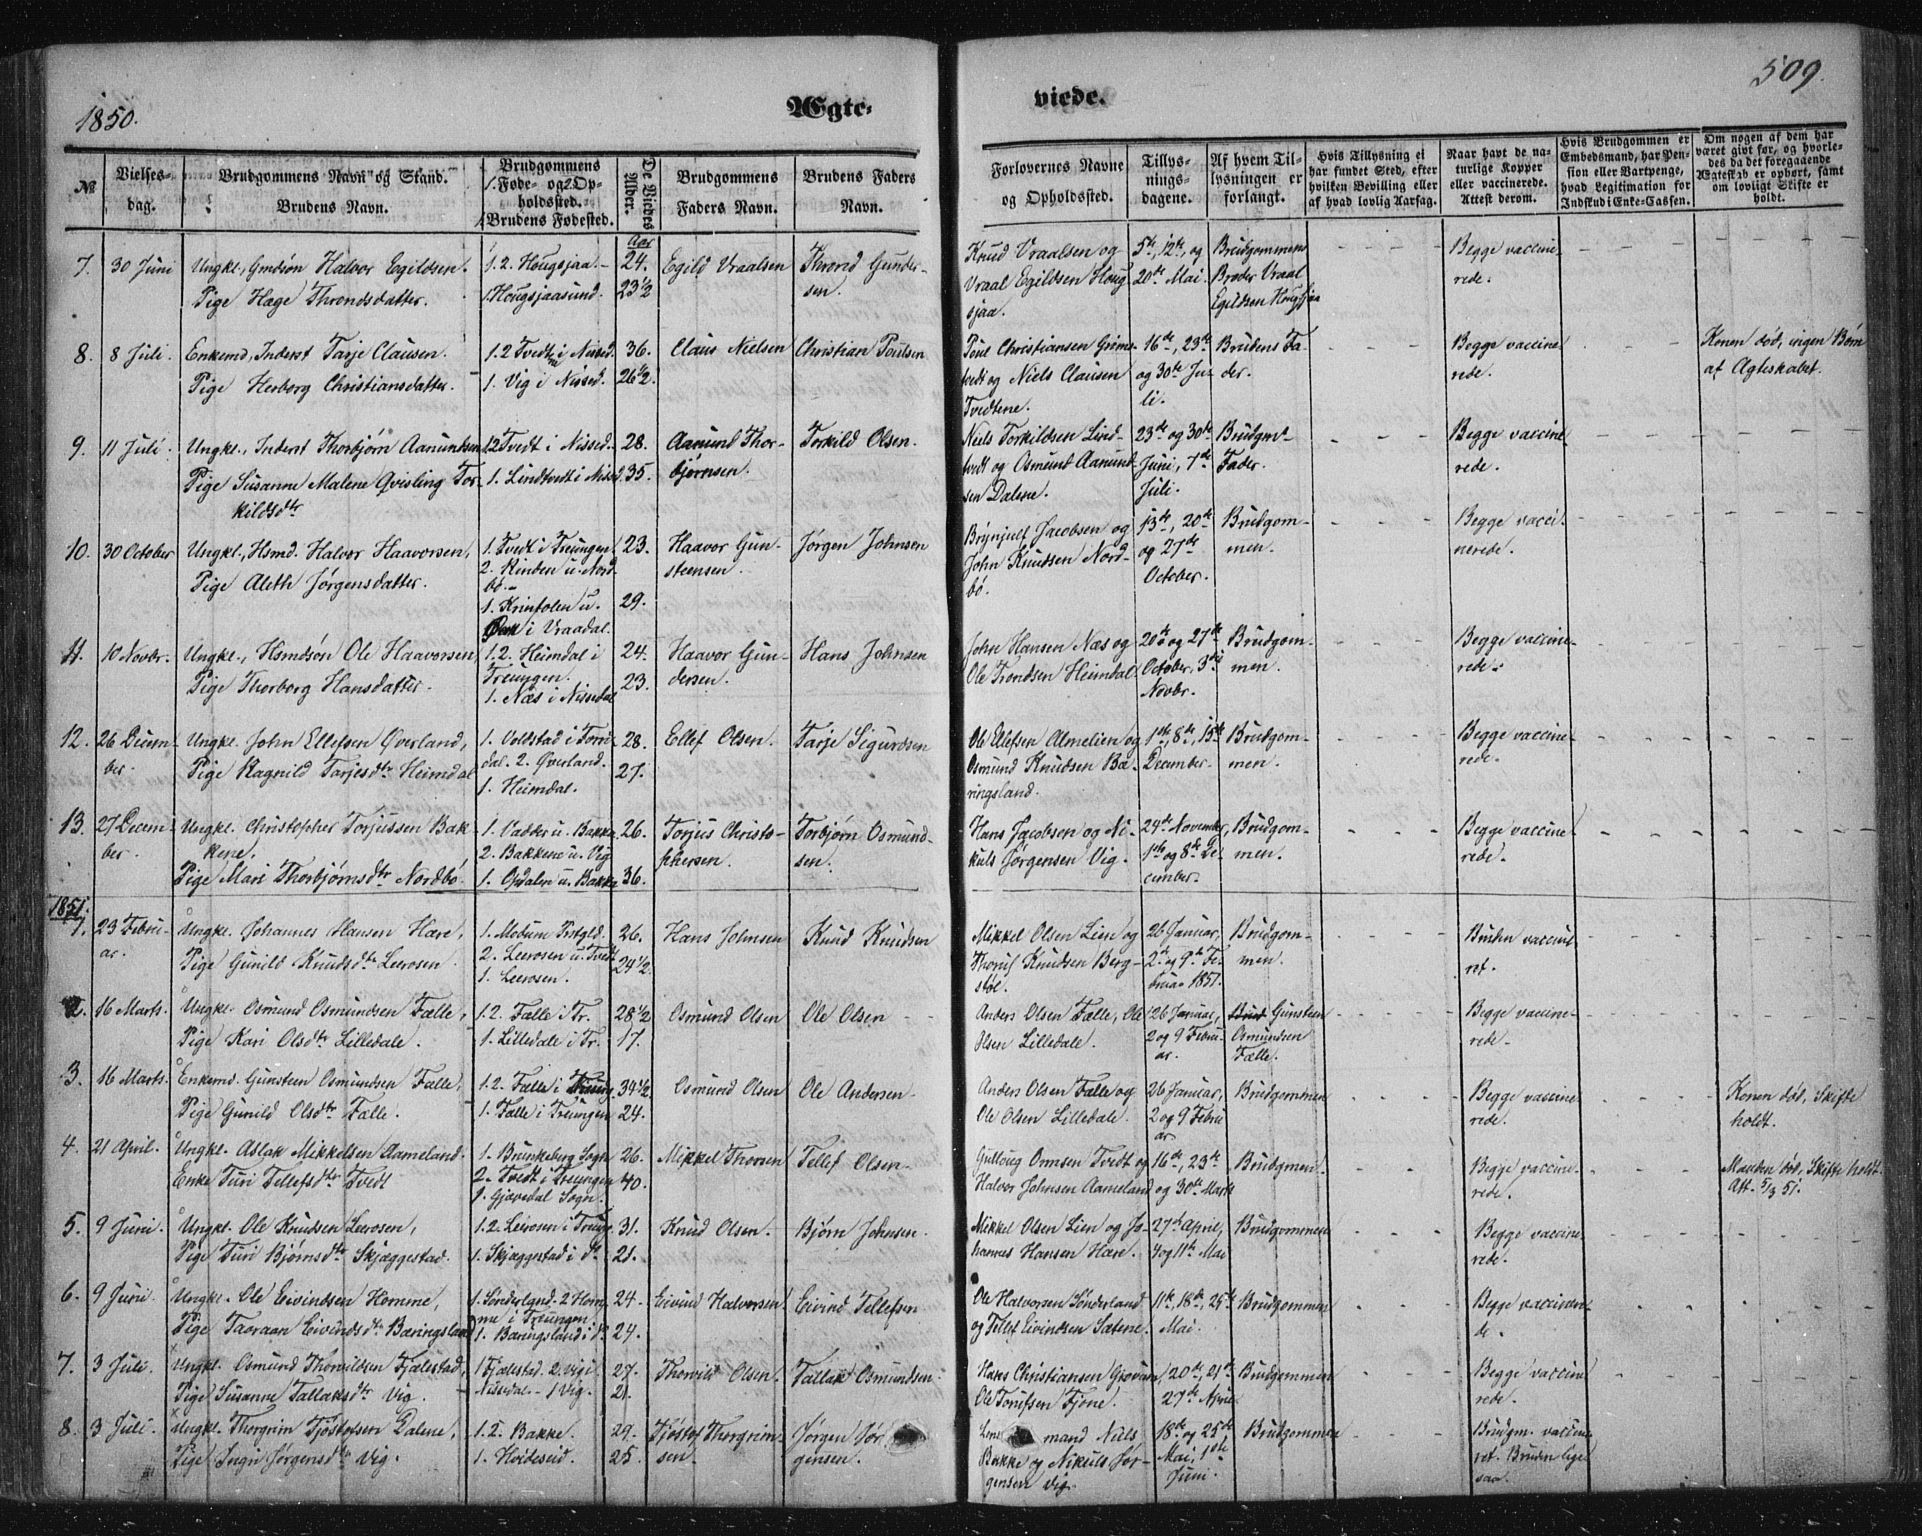 1850.
Ægte-
viede.
509.
№
Vielses-
dag.
Brudgommens Navn og Stand.
Brudens Navn.
Brudgommens
1. Føde- og 2. Op-
holdssted.
Brudens Fødested.
De Viedes
Alder.
Brudgommens
Faders Navn.
Brudens Faders
Navn.
Forlovernes Navne
og Opholdssted.
Tillys-
nings-
dagene.
Af hvem Til-
lysningen er
forlangt.
Hvis Tillysning ei
har fundet Sted, efter
hvilken Bevilling eller
af hvad lovlig Aarsag.
Naar havt de na-
turlige Kopper
eller vaccinerede.
Attest derom.
Hvis Brudgommen er
Embedsmand, har Pen-
sion eller Vartpenge,
hvad Legitimation for
Indskud i Enke-Cassen.
Om nogen af dem har
været gift før, og hvorle-
des da det foregaaende
Ægteskab er ophørt, samt
om lovligt Skifte er
holdt.
7. 30 Juni Ungkl., Gmdsøn Halvor Egildsen.
Pige Hage Throndsdatter.
1.2. Hougsjaa.
1. Hougsjaasund.
Aar
24.
23 1/2
Egild Vraalsen
Thrond Gunder-
sen.
Knud Vraalsen og
Vraal Egildsen Houg-
sjaa.
5te, 12te, og
20de Mai.
Brudgommens
Broder Vraal
Egildsen Hougsjaa
Begge vaccine-
rede.
8. 8 Juli. Enkemd, Inderst Tarje Clausen.
Pige Herborg Christiansdatter.
1.2 Tvedt i Nissed.
1. Vig i Nissed.
36.
26 1/2.
Claus Nielsen
Christian Poulsen
Poul Christiansen Grims-
tvedt og Niels Clausen
Tvedtene.
16de, 23de
og 30te Ju-
li.
Brudens Fa-
der.
Begge vaccine-
rede.
Konen død, ingen Børn
af Ægteskabet.
9. 11 Juli. Ungkl., Inderst Thorbjørn Aanundsen
Pige Susanne Malene Qvisling Tor-
kildsdtr
12 Tvedt i Nissed.
1. Lindtvedt i Nissed.
28.
35.
Aanund Thor-
bjørnsen.
Torkild Olsen.
Niels Torkildsen Lind-
tvedt og Osmund Aanund-
sen Dalene.
23de og 30te
Juni, 7de
Juli.
Brudgms
Fader.
Begge vaccine-
rede.
10. 30 October Ungkl., Hsmd. Halvor Haavorsen,
Pige Aleth Jørgensdatter.
1. Tvedt i Treungen.
2. Rinden u. Nord-
bø.
1. Krintolen u.
i Vraadal.
23.
29.
Haavor Gun-
steensen.
Jørgen Johnsen
Brynjulf Jacobsen og
John Knudsen Nord-
bø.
13de, 20de
og 27de
October.
Brudgom-
men.
Begge vacci-
nerede.
11. 10 Novbr. Ungkl., Hsmdsøn Ole Haavorsen,
Pige Thorborg Hansdatter.
1.2. Heimdal i
Treungen.
1. Næs i Nissedal
24.
23.
Haavor Gun-
dersen.
Hans Johnsen
John Hansen Næs og
Ole Trondsen Heimdal
20de og 27de
October, 3die
Novbr.
Brudgom-
men.
Begge vaccine-
rede.
12. 26 Decem-
ber.
Ungkl. John Ellefsen Øverland,
Pige Ragnild Tarjesdtr Heimdal
1. Voldstad i Torri-
dal. 2. Øverland.
1. Heimdal.
28.
27.
Ellef Olsen.
Tarje Sigurdsen
Ole Ellefsen Almelien og
Osmund Knudsen Bæ-
ringsland.
1ste, 8de, 15de
December.
Brudgom-
men.
Begge vaccine-
rede.
13. 27 Decem-
ber.
Ungkl. Christopher Torjussen Bak-
kene.
Pige Mari Thorbjørnsdtr Nordbø.
1. Vadder u. Bakka
2. Bakkene u. Vig
1. Opdalen u. Bakka
26.
36.
Torjus Christo-
phersen.
Torbjørn Osmund-
sen.
Hans Jacobsen og Ni-
kuls Jørgensen Vig.
24de November,
1ste og 8de De-
cember.
Brudgom-
men.
Begge vaccine-
rede.
1851.
1. 23 Febru-
ar.
Ungkl. Johannes Hansen Hære,
Pige Gunild Knudsdtr Leerosen.
1. Modum Prstgld.
2. Leerosen u. Tvedt
1. Leerosen.
26.
24 1/2.
Hans Johnsen
Knud Knudsen
Mikkel Olsen Lien og
Thoruf Knudsen Berg-
støl.
26 Januar,
2den og 9de Fe-
bruar 1851.
Brudgom-
men.
Bruden vaccine-
ret.
2. 16 Marts. Ungkl. Osmund Osmundsen Fælle,
Pige Kari Olsdtr Lilledale.
1.2. Fælle i Tr.
1. Lilledale i Tr.
28 1/2
17.
Osmund Olsen
Ole Olsen
Anders Olsen Fælle, Ole
Olsen Lilledale.
26 Januar,
2 og 9 Febru-
ar.
Gunsteen
Osmundsen
Fælle.
Begge vaccine-
rede.
3. 16 Marts. Enkemd. Gunsteen Osmundsen Fælle,
Pige Gunild Olsdtr Fælle.
1.2. Fælle i Treung.
1. Fælle i Treungen
34 1/2
24.
Osmund Olsen
Ole Andersen
Anders Olsen Fælle og
Ole Olsen Lilledale.
26 Januar,
2 og 9 Febru-
ar
Brudgommen
Begge vaccine-
rede.
Konen død, Skifte
holdt.
4. 21 April. Ungkl. Aslak Mikkelsen Aameland.
Enke Turi Tellefsdtr Tvedt
1. Brunkeberg Sogn
2. Tvedt i Treungen
1. Gjøvedal Sogn.
26.
40.
Mikkel Thorsen
Tellef Olsen
Gulloug Onnsen Tvedt og
Halvor Johnsen Aameland
16de, 23de
og 30te Marts
Brudgmen
Begge vaccine-
rede.
Manden død, Skifte holdt.
Att. 5/3 51.
5. 9 Juni. Ungkl. Ole Knudsen Leerosen,
Pige Turi Bjørnsdtr Skjæggestad.
1.2. Leirosen i Treung.
1. Skjæggestad i do
31.
21.
Knud Olsen.
Bjørn Johnsen.
Mikkel Olsen Lien og Jo-
hannes Hansen Hære.
27de April,
4 og 11te Mai
Brudgommen
Begge vaccine-
rede.
6. 9 Juni. Ungkl. Ole Eivindsen Homme,
Pige Taaraan Eivindsdtr Bæringsland
1. Sønderland. 2 Hom-
me i Treungen
1. Bæringsland i do
24.
24.
Eivind Halvorsen
Eivind Tellefsen
Ole Halvorsen Sønderland
og Tellef Eivindsen Sætene.
11te, 18de, 25de
Mai.
Brudgommen
Begge vaccinere-
de.
7. 3 Juli Ungkl. Osmund Thorvildsen Fjælestad,
Pige Susanne Tallaksdtr Vig.
1 Fjælestad. 2. Vig i
Nissedal - 1 Vig.
27.
21.
Thorvild Olsen.
Tallak Osmundsen.
Hans Christiansen Grovum,
Ole Tonifsen Fjone.
20de, 21de
27de April
Brudgommen
Begge vaccine-
rede.
8. 3 Juli. Ungkl. Thorgrim Tjøstolsen Dalene,
Pige Ingri Jørgensdtr Vig.
1.2. Bakke.
1. Hvideseid.
29.
25.
Tjøstof Thorgrim-
sen.
Jørgen Jør-
gensen.
mand Niels
Bakke og Nikuls Jør-
gensen Vig.
18de og 25de
Mai, 1ste
Juni.
Brudgommen
Brudgm. vaccine-
ret. Bruden lige-
saa.